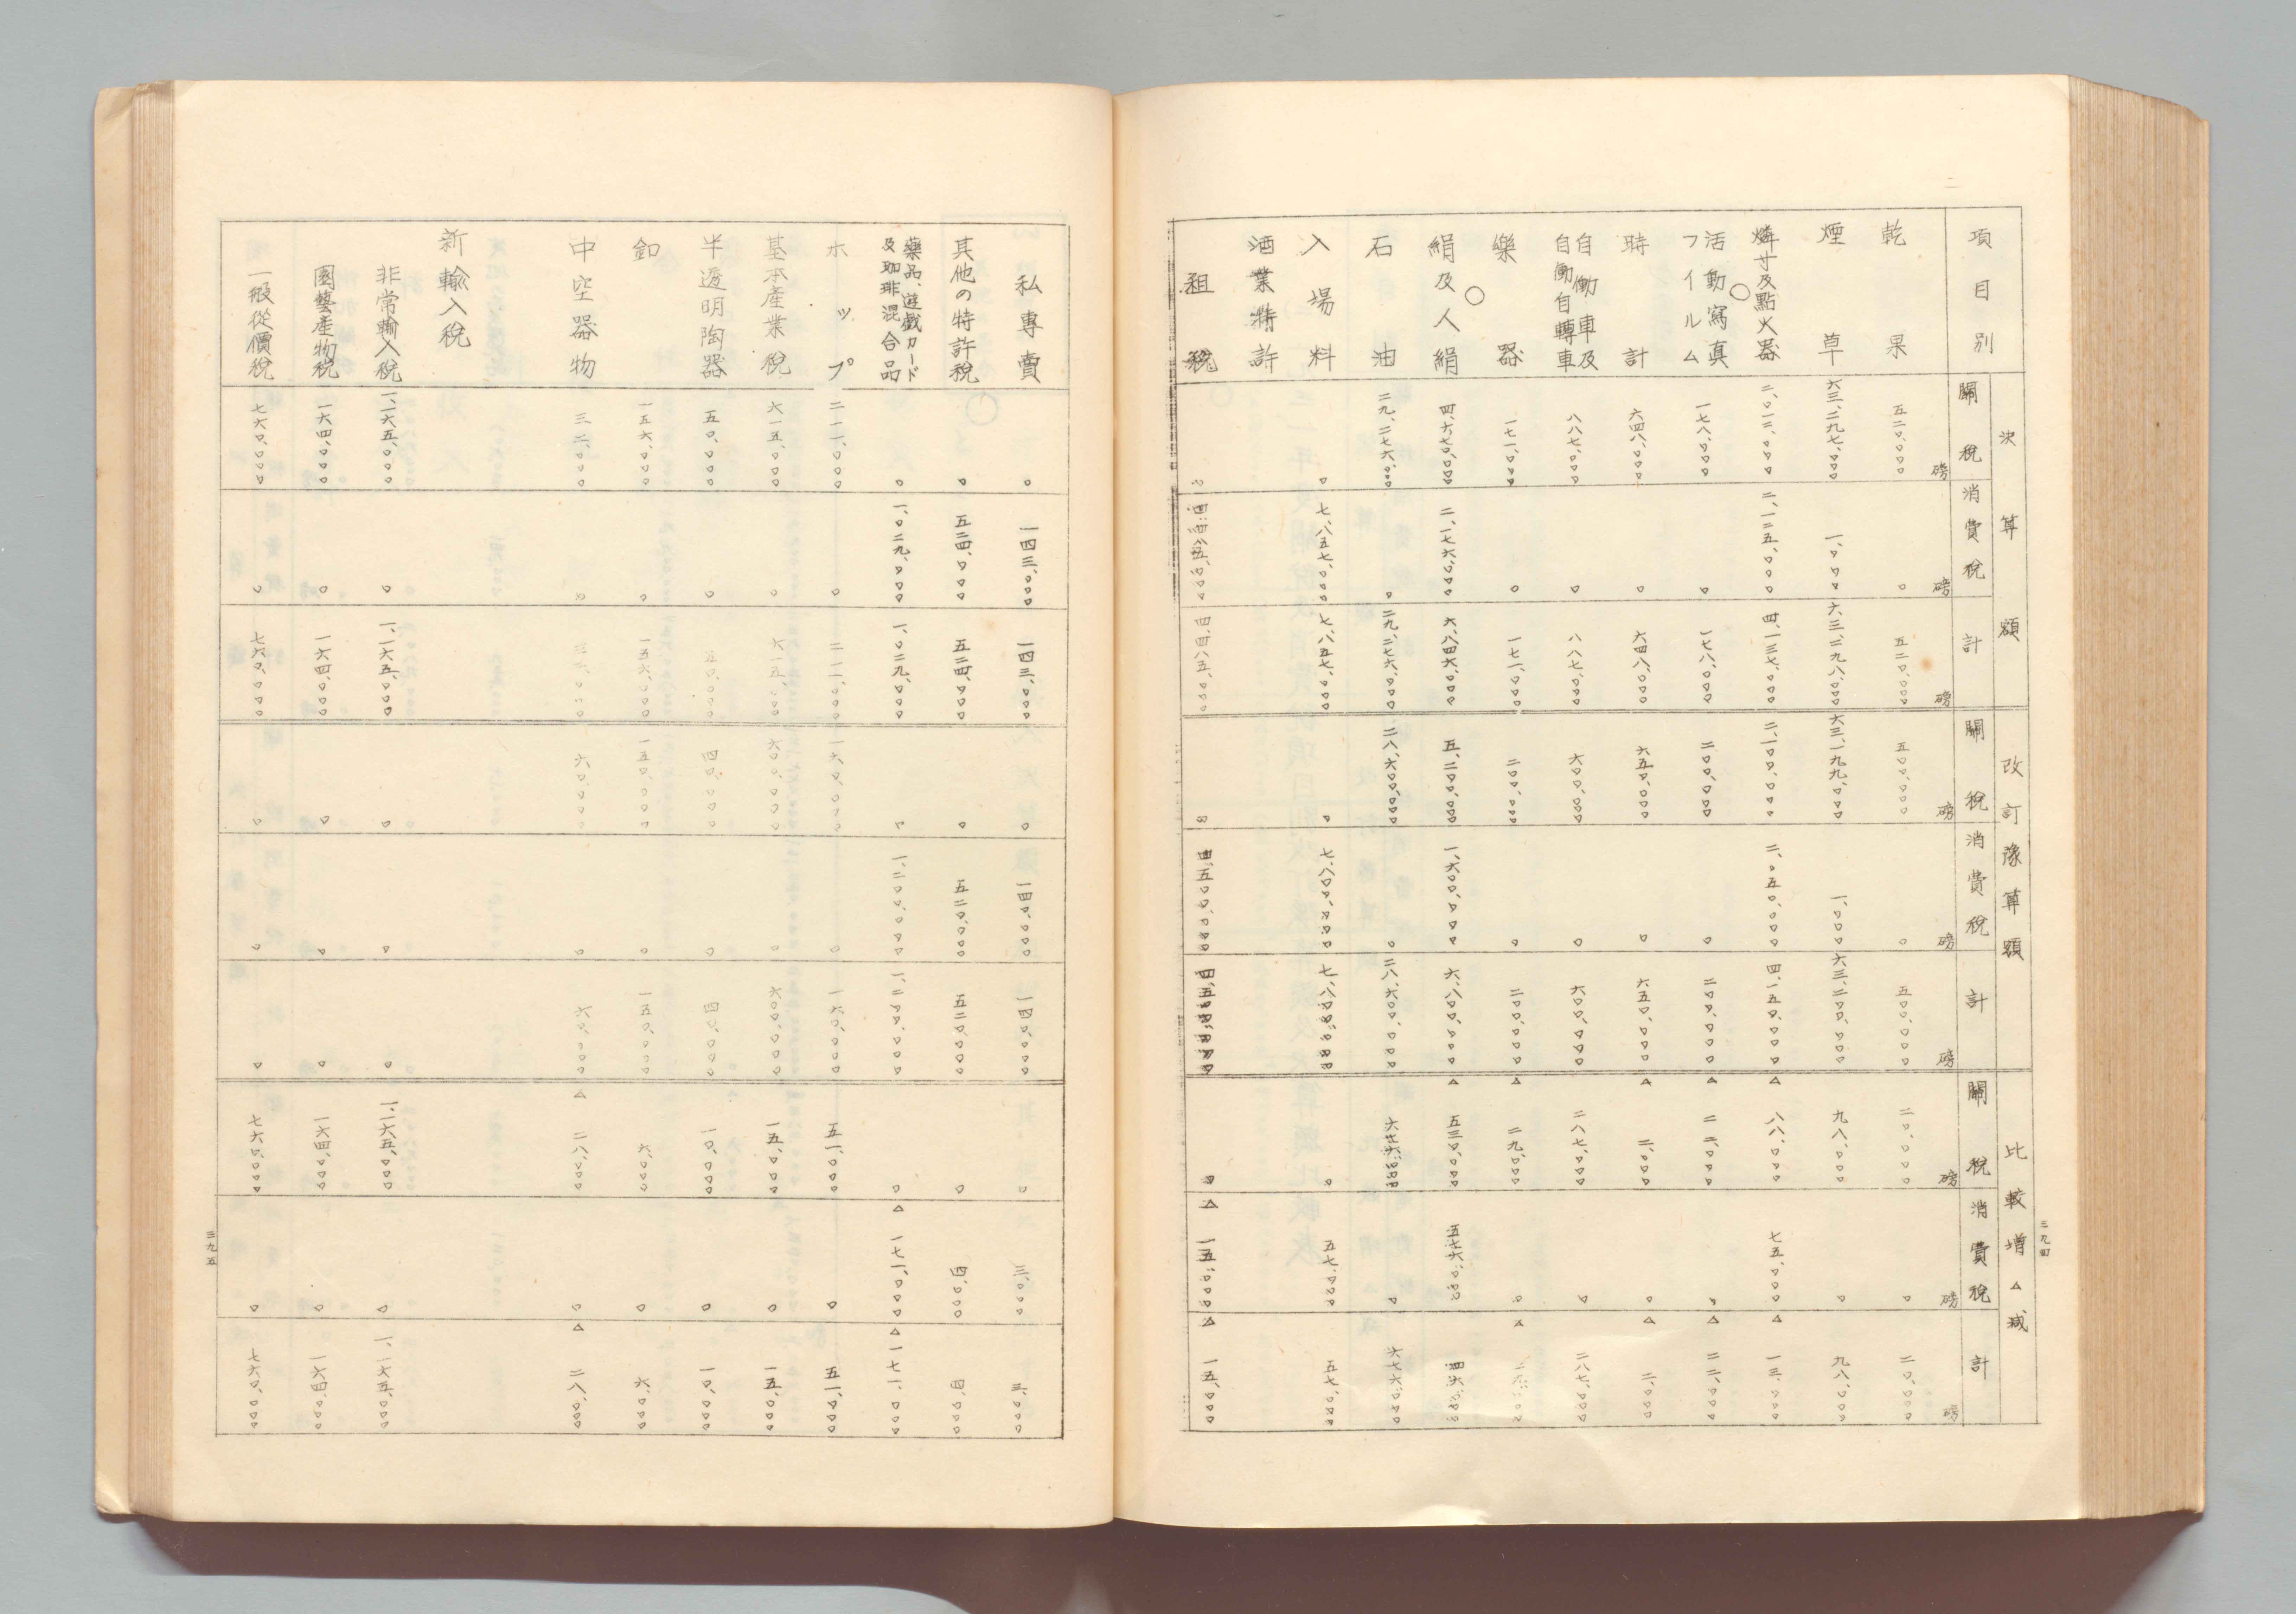 三九四
決算額 改訂豫算額 比較增△減
項目別 關稅 消費稅 計 關稅 消費稅 計 關稅 消費稅 計
磅 磅 磅 磅 磅 磅 磅 磅 磅
乾果 五二〇、〇〇〇 〇 五二〇、〇〇〇 五〇〇、〇〇〇 〇 五〇〇、〇〇〇 二〇、〇〇〇 〇 二〇、〇〇〇
煙草 六三、二九七、〇〇〇 一、〇〇〇 六三、二九八、〇〇〇 六三、一九九、〇〇〇 一、〇〇〇 六三、二〇〇、〇〇〇 九八、〇〇〇 〇 九八、〇〇〇
燐寸及點火器 二、〇一二、〇〇〇 二、一二五、〇〇〇 四、一三七、〇〇〇 二、一〇〇、〇〇〇 二、〇五〇、〇〇〇 四、一五〇、〇〇〇 △ 八八、〇〇〇 七五、〇〇〇 △ 一三、〇〇〇
○
活動寫真
フイルム 一七八、〇〇〇 〇 一七八、〇〇〇 二〇〇、〇〇〇 〇 二〇〇、〇〇〇 △ 二二、〇〇〇 〇 △ 二二、〇〇〇
時計 六四八、〇〇〇 〇 六四八、〇〇〇 六五〇、〇〇〇 〇 六五〇、〇〇〇 △ 二、〇〇〇 〇 △ 二、〇〇〇
自働車及
自働自轉車 八八七、〇〇〇 〇 八八七、〇〇〇 六〇〇、〇〇〇 〇 六〇〇、〇〇〇 二八七、〇〇〇 〇 二八七、〇〇〇
樂器 一七一、〇〇〇 〇 一七一、〇〇〇 二〇〇、〇〇〇 〇 二〇〇、〇〇〇 △ 二九、〇〇〇 〇 △
○
絹及人絹 四、六七〇、〇〇〇 二、一七六、〇〇〇 六、八四六、〇〇〇 五、二〇〇、〇〇〇 一、六〇〇、〇〇〇 六、八〇〇、〇〇〇 △ 五三〇、〇〇〇 五七六、〇〇〇 四六、〇〇〇
石油 二九、二七六、〇〇〇 〇 二九、二七六、〇〇〇 二八、六〇〇、〇〇〇 〇 二八、六〇〇、〇〇〇 六七六、〇〇〇 〇 六七六、〇〇〇
入場料 〇 七、八五七、〇〇〇 七、八五七、〇〇〇 〇 七、八〇〇、〇〇〇 七、八〇〇、〇〇〇 〇 五七、〇〇〇 五七、〇〇〇
酒業特許
租稅 〇 四、四八五、〇〇〇 四、四八五、〇〇〇 〇 四、五〇〇、〇〇〇 四、五〇〇、〇〇〇 〇 △ 一五、〇〇〇 △ 一五、〇〇〇
私專賣 〇 一四三、〇〇〇 一四三、〇〇〇 〇 一四〇、〇〇〇 一四〇、〇〇〇 〇 三、〇〇〇 三、〇〇〇
其他の特許稅 〇 五二四、〇〇〇 五二四、〇〇〇 〇 五二〇、〇〇〇 五二〇、〇〇〇 〇 四、〇〇〇 四、〇〇〇
藥品、遊戲カード
及珈琲混合品 〇 一、〇二九、〇〇〇 一、〇二九、〇〇〇 〇 一、二〇〇、〇〇〇 一、二〇〇、〇〇〇 〇 △ 一七一、〇〇〇 △ 一七一、〇〇〇
ホップ 二一一、〇〇〇 〇 二一一、〇〇〇 一六〇、〇〇〇 〇 一六〇、〇〇〇 五一、〇〇〇 〇 五一、〇〇〇
基本產業稅 六一五、〇〇〇 〇 六一五、〇〇〇 六〇〇、〇〇〇 〇 六〇〇、〇〇〇 一五、〇〇〇 〇 一五、〇〇〇
半透明陶器 五〇、〇〇〇 〇 五〇、〇〇〇 四〇、〇〇〇 〇 四〇、〇〇〇 一〇、〇〇〇 〇 一〇、〇〇〇
釦 一五六、〇〇〇 〇 一五六、〇〇〇 一五〇、〇〇〇 〇 一五〇、〇〇〇 六、〇〇〇 〇 六、〇〇〇
中空器物 三二、〇〇〇 〇 三二、〇〇〇 六〇、〇〇〇 〇 六〇、〇〇〇 △ 二八、〇〇〇 〇 △ 二八、〇〇〇
新輸入稅
非常輸入稅 一、一六五、〇〇〇 〇 一、一六五、〇〇〇 〇 〇 〇 一、一六五、〇〇〇 〇 一、一六五、〇〇〇
園藝產物稅 一六四、〇〇〇 〇 一六四、〇〇〇 〇 〇 〇 一六四、〇〇〇 〇 一六四、〇〇〇
一般從價稅 七六〇、〇〇〇 〇 七六〇、〇〇〇 〇 〇 〇 七六〇、〇〇〇 〇 七六〇、〇〇〇
三九五